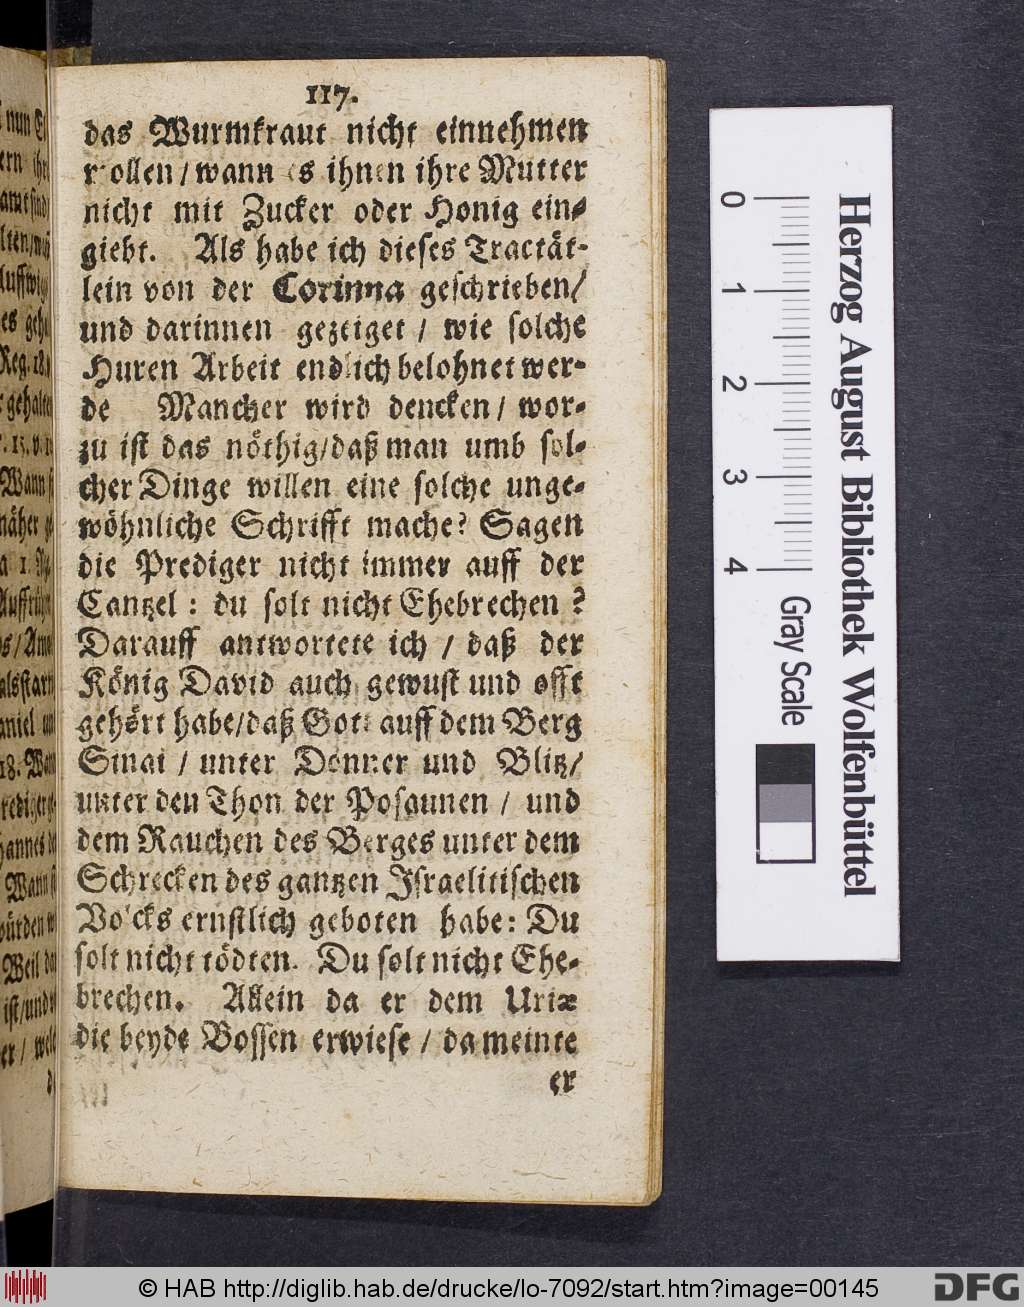 117.
das Wurmkraut nicht einnehmen
wollen / wann es ihnen ihre Mutter
nicht mit Zucker oder Honig ein-
giebt. Als habe ich dieses Tractät-
lein von der Corinna geschrieben /
und darinnen gezeiget / wie solche
Huren Arbeit endlich belohnet wer-
de Mancher wird dencken / wor-
zu ist das nöthig / daß man umb sol-
cher Dinge willen eine solche unge-
wöhnliche Schrifft mache? Sagen
die Prediger nicht immer auff der
Cantzel : du solt nicht Ehebrechen ?
Darauff antwortete ich / daß der
König David auch gewust und offt
gehört habe / daß Gott auff dem Berg
Sinai / unter Donner und Blitz /
unter den Thon der Posaunen / und
dem Rauchen des Berges unter dem
Schrecken des gantzen Israelitischen
Volcks ernstlich geboten habe: Du
solt nicht tödten. Du solt nicht Ehe-
brechen. Allein da er dem Uriæ
die beyde Bossen erwiese / da meinte
er
0 1 2 3 4
Herzog August Bibliothek Wolfenbüttel
Gray Scale
© HAB http://diglib.hab.de/drucke/lo-7092/start.htm?image=00145
DFG